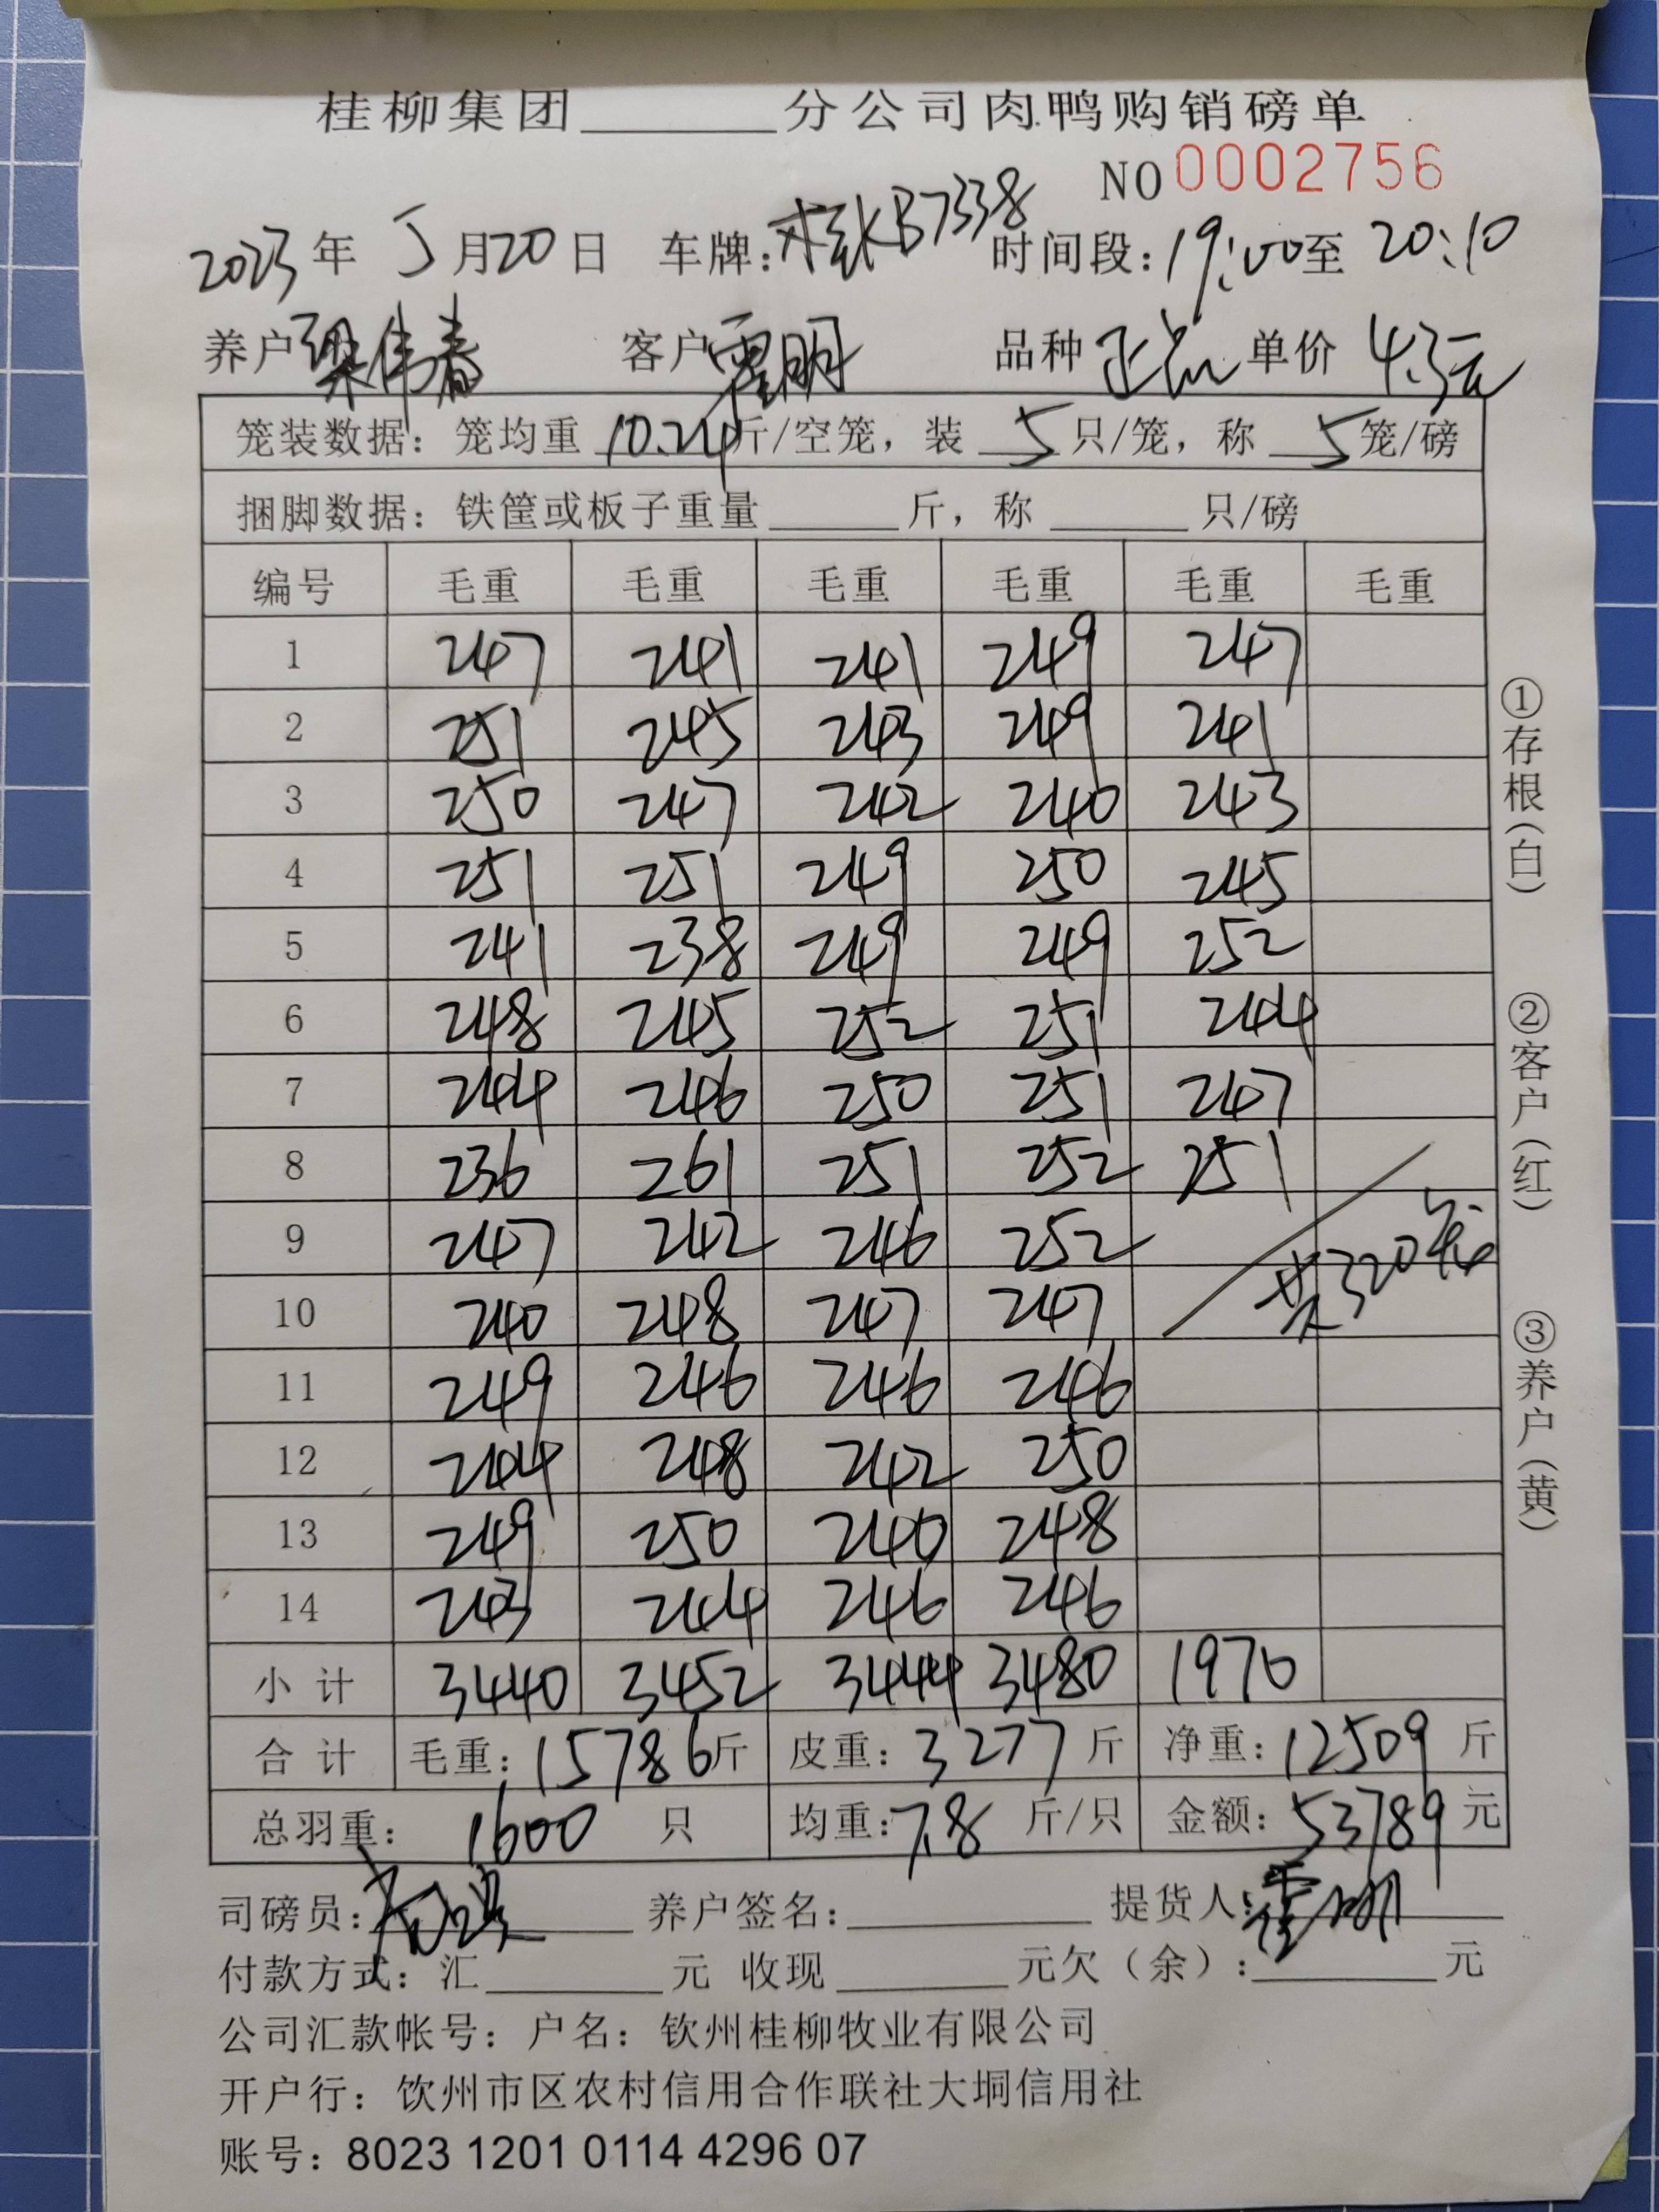 桂柳集团________分公司肉鸭购销磅单
NO 0002756
2023年 5月20日 车牌:桂KB7338 时间段:19:00至 20:10
养户 梁伟春 客户 霍明 品种 正点 单价 4.3元
笼装数据: 笼均重 10.24斤/空笼, 装 5 只/笼, 称 5 笼/磅
捆脚数据: 铁筐或板子重量______斤, 称______只/磅
编号 毛重 毛重 毛重 毛重 毛重 毛重
1 247 241 241 249 247
2 251 245 243 249 241
3 250 247 242 240 243
4 251 251 249 250 245
5 241 238 249 249 252
6 248 245 252 251 244
7 244 246 250 251 247
8 236 261 251 252 251
9 247 242 246 252
共320笼
10 240 248 247 247
11 249 246 246 246
12 244 248 242 250
13 249 250 240 248
14 243 244 246 246
小计 3440 3452 3444 3480 1970
合计 毛重:15786斤 皮重:3277斤 净重:12509斤
总羽重: 1600 只 均重:7.8 斤/只 金额:53789元
司磅员: 养户签名:__________ 提货人:霍明
付款方式: 汇________元 收现________元欠(余):________元
公司汇款帐号: 户名: 钦州桂柳牧业有限公司
开户行: 饮州市区农村信用合作联社大垌信用社
账号: 8023 1201 0114 4296 07
①存根(白) ②客户(红) ③养户(黄)